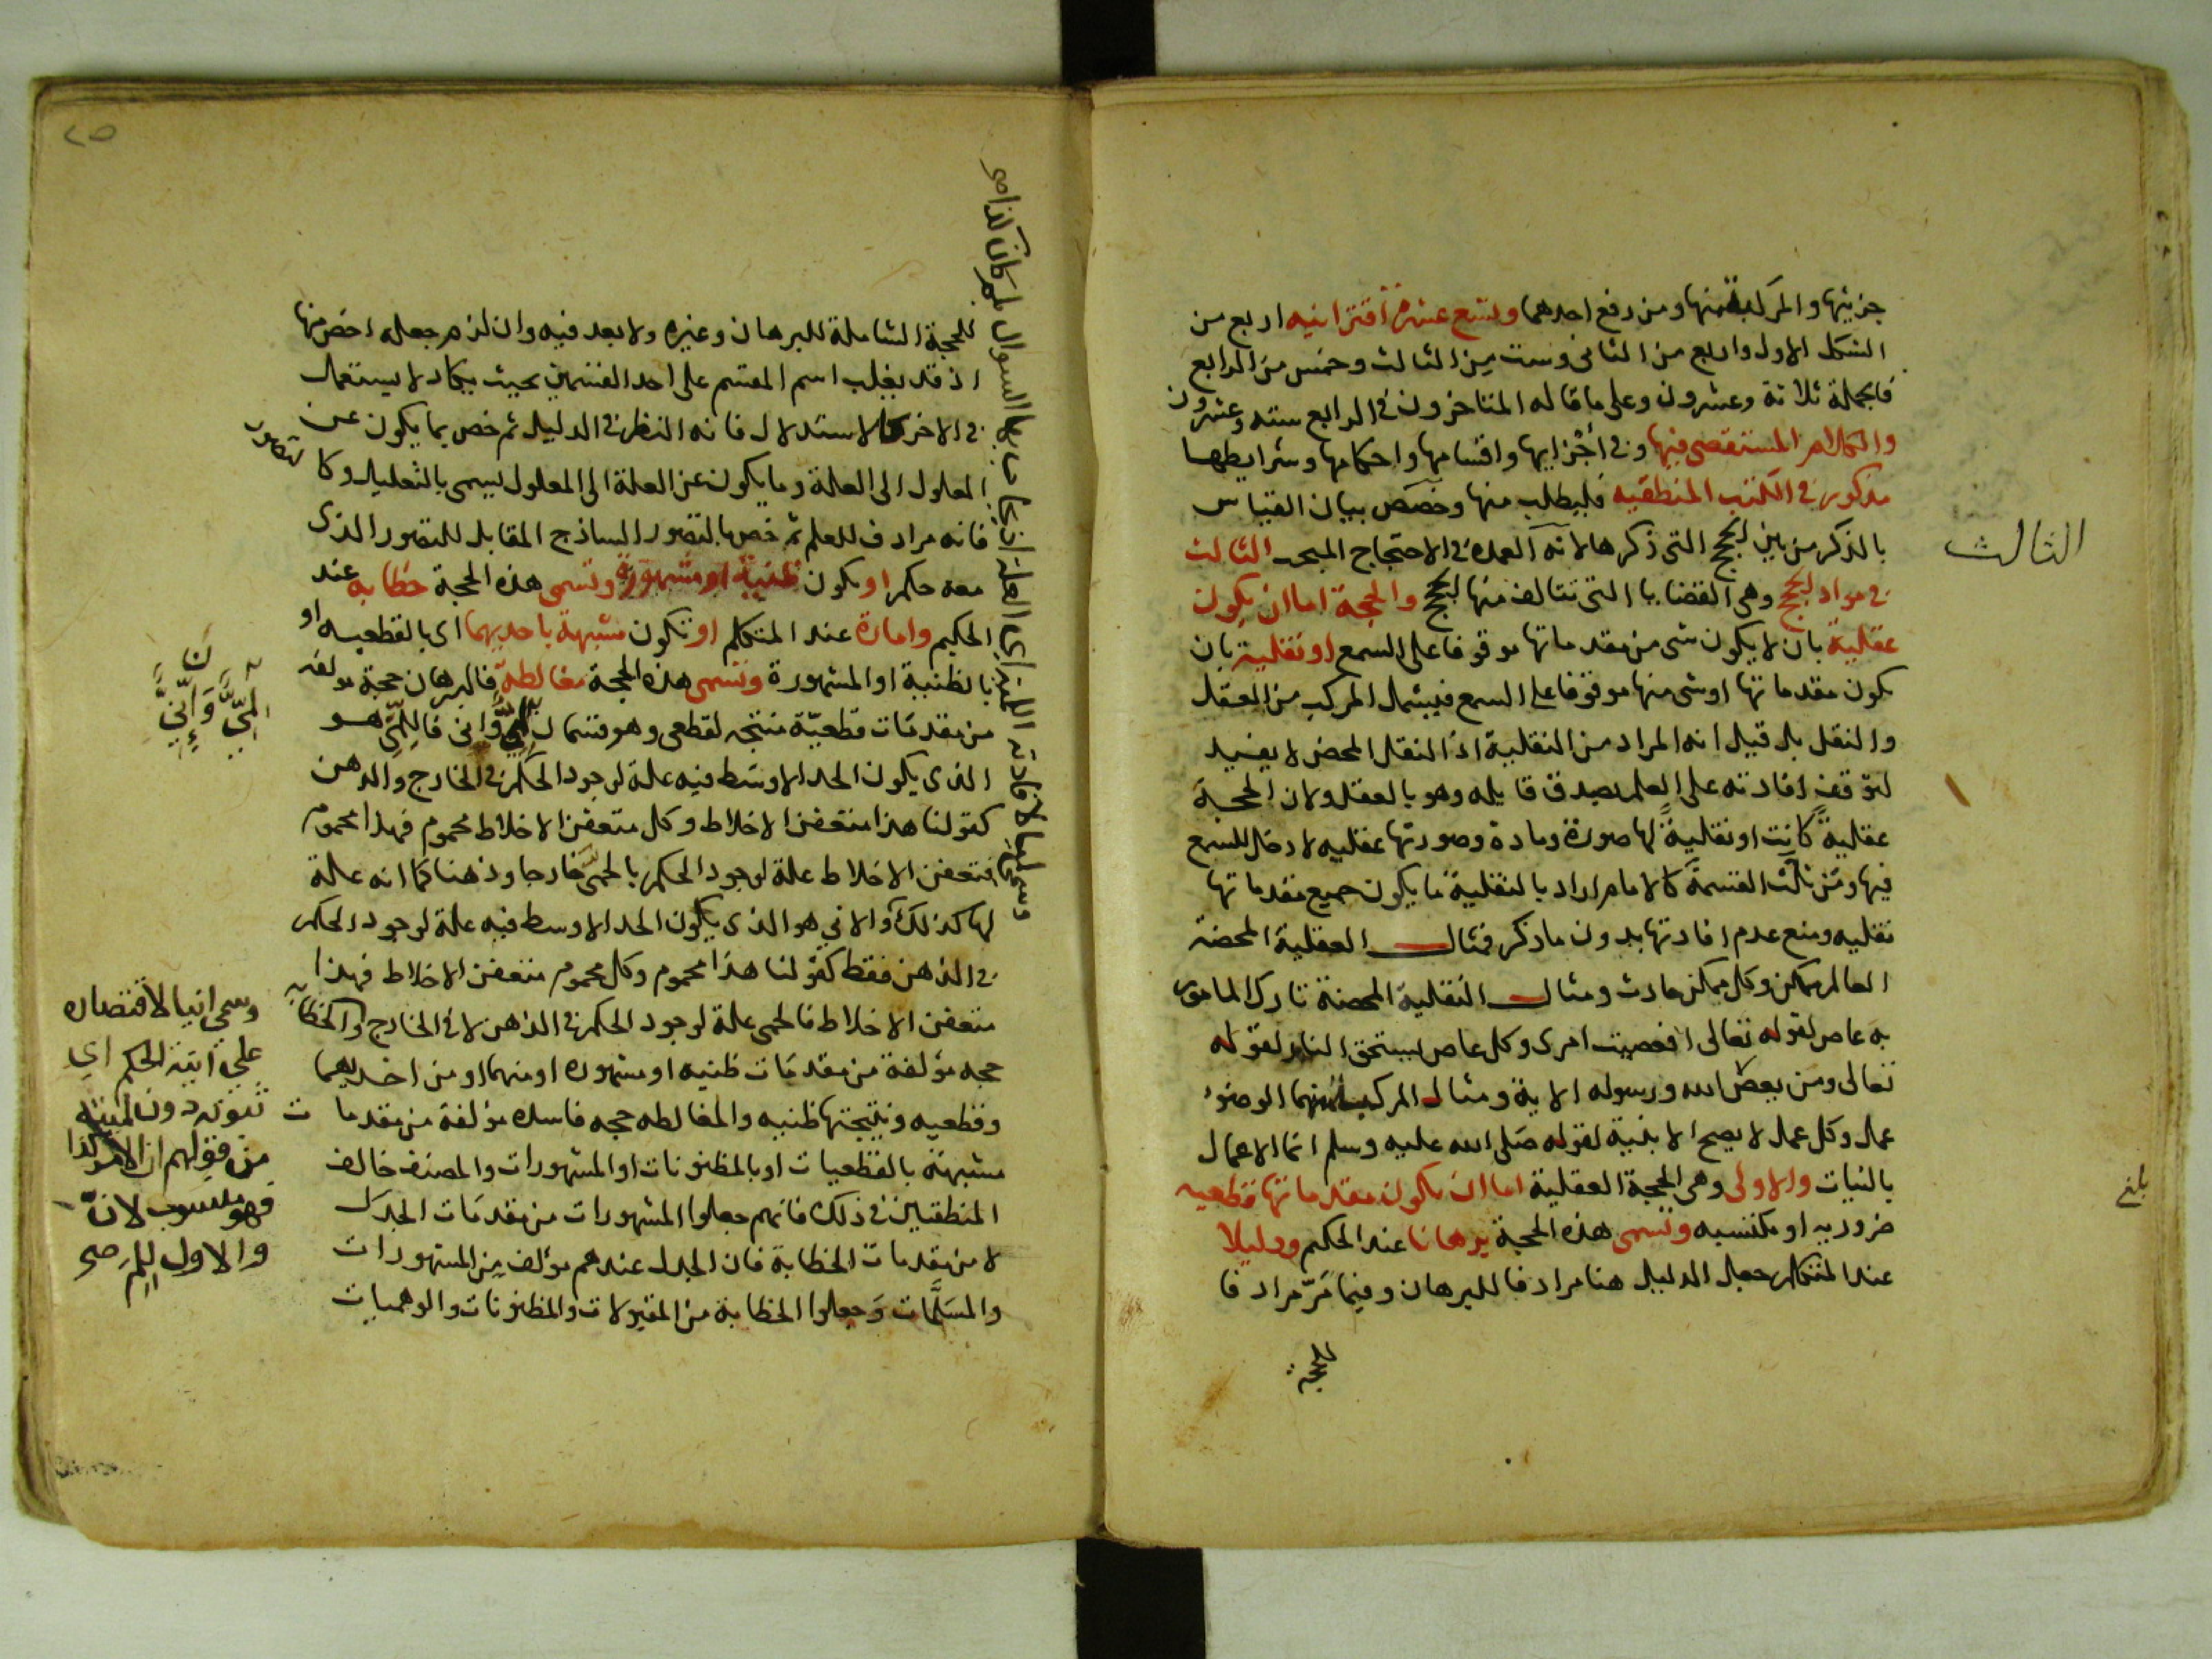 جزئيتها والمركبة منها ومن رفع احدهما وتسع عشرة اقترانيه اربع من
الشكل الاول واربع من الثانى وست من الثالث وخمس من الرابع
فالجملة ثلاثة وعشرون وعلى ما قاله المتاخرون فى الرابع سته وعشرون
والكلام المستقصى فيها وفى أجْزايها واقسامها واحكامها وشرايطها
مذكور فى الكتب المنطقيه فليطلب منها وخصَّص بيان القياس
بالذكر من بين الحجج التى ذكرها لانه العمدة فى الاحتجاج المبحث الثالث
فى مواد الحجج وهى القضايا التى تتالف منها الحجج والحجة اما ان يكون
عقلية بان لا يكون شى من مقدماتها موقوفا على السمع او نقلية بان
يكون مقدماتها او شى منها موقوفا على السمع فيشمل المركب من العقل
والنقل بل قيل انه المراد من النقلية اذ النقل المحض لا يفيد
لتوقف افادته على العلم بصدق قايله وهو بالعقل ولان الحجة
عقليةً كانت او نقليةً لها صورة ومادة وصورتها عقليه لا دخل للسمع
فيها ومن ثلَّث القسمة كالامام اراد بالنقلية ما يكون جميع مقدماتها
نقليه ومنع عدم افادتها بدون ما ذكر فمثال العقلية المحضة
العالم ممكن وكل ممكن حادث ومثال النقلية المحضة تارك المامور
به عاص لقوله تعالى افعصيت امرى وكل عاص يستحق النار لقوله
تعالى ومن يعص الله ورسوله الاية ومثال المركب منهما الوضوء
عمل وكل عمل لا يصح الا بنية لقوله صلى الله عليه وسلم انما الاعمال
بالنيات والاولى وهى الحجة العقلية اما ان يكون مقدماتها قطعيه
ضروريه او مكتسبه وتسمى هذه الحجة برهانا عند الحكيم ودليلا
عند المتكلم جعل الدليل هنا مرادفا للبرهان وفيما مَرّ مرادفا
للحجة
الثالث
بلغ
٢٥
للحجة الشاملة للبرهان وغيره ولا بعد فيه وان لزم جعله اخص منها
اذ قد يغلب اسم المقسم على احد القسمين بحيث يكاد لا يستعمل
فى الاخر كالاستدلال فانه النظر فى الدليل ثم خص بما يكون من
المعلول الى العلة وما يكون عن العلة الى المعلول يسمى بالتعليل وكالتصور
فانه مرادف للعلم ثم خص بالتصور الساذج المقابل للتصور الذى
معه حكم او يكون ظنية او مشهورة وتسمى هذه الحجة خطابه عند
الحكيم وامارة عند المتكلم او تكون مشبهة باحديهما اى بالقطعيه او
بالظنية او المشهورة وتسمى هذه الحجة مغالطة فالبرهان حجة مولفة
من مقدمات قطعيّة منتجه لقطعى وهو قسمان لمى وانى فاللِّمى هو
الذى يكون الحد الاوسط فيه علة لوجود الحكم فى الخارج والذهن
كقولنا هذا متعفن الاخلاط وكل متعفن الاخلاط محموم فهذا محموم
فتعفن الاخلاط علة لوجود الحكم بالحمى خارجا وذهنا كما انه علة
لها كذلك والانى هو الذى يكون الحد الاوسط فيه علة لوجود الحكم
فى الذهن فقط كقولنا هذا محموم وكل محموم متعفن الاخلاط فهذا
متعفن الاخلاط فالحمى علة لوجود الحكم فى الذهن لا فى الخارج والخطابة
حجه مؤلفة من مقدمات ظنيه او مشهوره او منهما او من احديهما
وقطعيه ونتيجتها ظنيه والمغالطه حجه فاسده مؤلفة من مقدمات
مشبهة بالقطعيات او بالمظنونات او المشهورات والمصنف خالف
المنطقيين فى ذلك فانهم جعلوا المشهورات من مقدمات الجدل
لا من مقدمات الخطابة فان الجدل عندهم مؤلف من المشهورات
والمسَلَّمات وَجعلوا الخطابة من المقبولات والمظنونات والوهميات
وسمى لميا لافادته اللمية اى العلة اذ يجاب بها السوال لم كان كذا صح
لِمِّيٌّ وَإِنِّيٌّ
ن
وسمى انيا لاقتصاره
على انية الحكم اى
ثبوته دون لميته
من قولهم ان الامر كذا
فهو منسوب لانَّ
والاول لِلِمَ صح